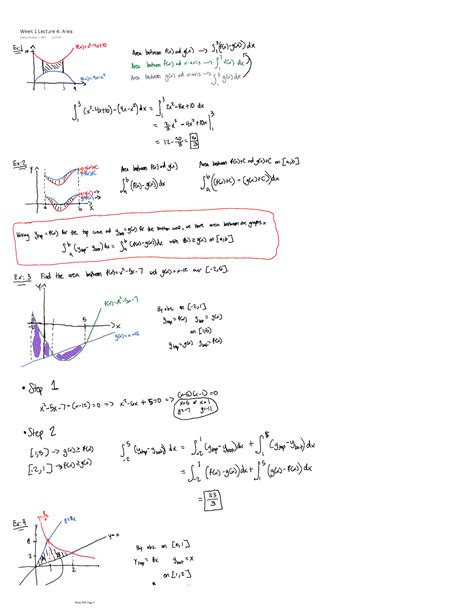 Week 1 Lecture 4: Area
Ex: 1
f(x)=x²-4x+10
g(x)=4x-x²
1 3 4
Area between f(x) and g(x) → ∫₁³(f(x)-g(x))dx
Area between f(x) and x-axis → ∫₁³ f(x) dx
Area between g(x) and x-axis → ∫₁³ g(x) dx
∫₁³ (x²-4x+10)-(4x-x²)dx = ∫₁³ 2x²-8x+10 dx
= 2/3 x³ - 4x² + 10x |₁³
Ex: 2
Area between f(x) and g(x)
Area between f(x)+C and g(x)+C on [a,b]
∫ₐᵇ (f(x)-g(x))dx
∫ₐᵇ ((f(x)+C) - (g(x)+C))dx
y_top = f(x) for the top curve and y_bot = g(x) for the bottom curve, we have area between the graphs =
∫ₐᵇ (y_top - y_bot)dx = ∫ₐᵇ (f(x)-g(x))dx with f(x) ≥ g(x) on [a,b]
Ex: 3 Find the area between f(x)=x²-5x-7 and g(x)=x-12 over [-2,5].
f(x)=x²-5x-7
g(x)=x-12
-2 1 5
By obs on [-2,1]
y_top = f(x) y_bot = g(x)
on [1,5]
y_top = g(x) y_bot = f(x)
• Step 1
x²-5x-7-(x-12)=0 => x²-6x+5=0 => (x-5)(x-1)=0
x=5 or x=1
y=-7 y=-11
• Step 2
[1,5] → g(x) ≥ f(x)
[-2,1] → f(x) ≥ g(x)
∫₋₂⁵ (y_top-y_bot) dx = ∫₋₂¹ (y_top-y_bot)dx + ∫₁⁵ (y_top-y_bot) dx
= ∫₋₂¹ (f(x)-g(x))dx + ∫₁⁵ (g(x)-f(x))dx
= 113/3
Ex: 4
y=8x
y=x
8
1 2
By obs. on [0,1]
y_top = 8x y_bot = x
on [1,2]